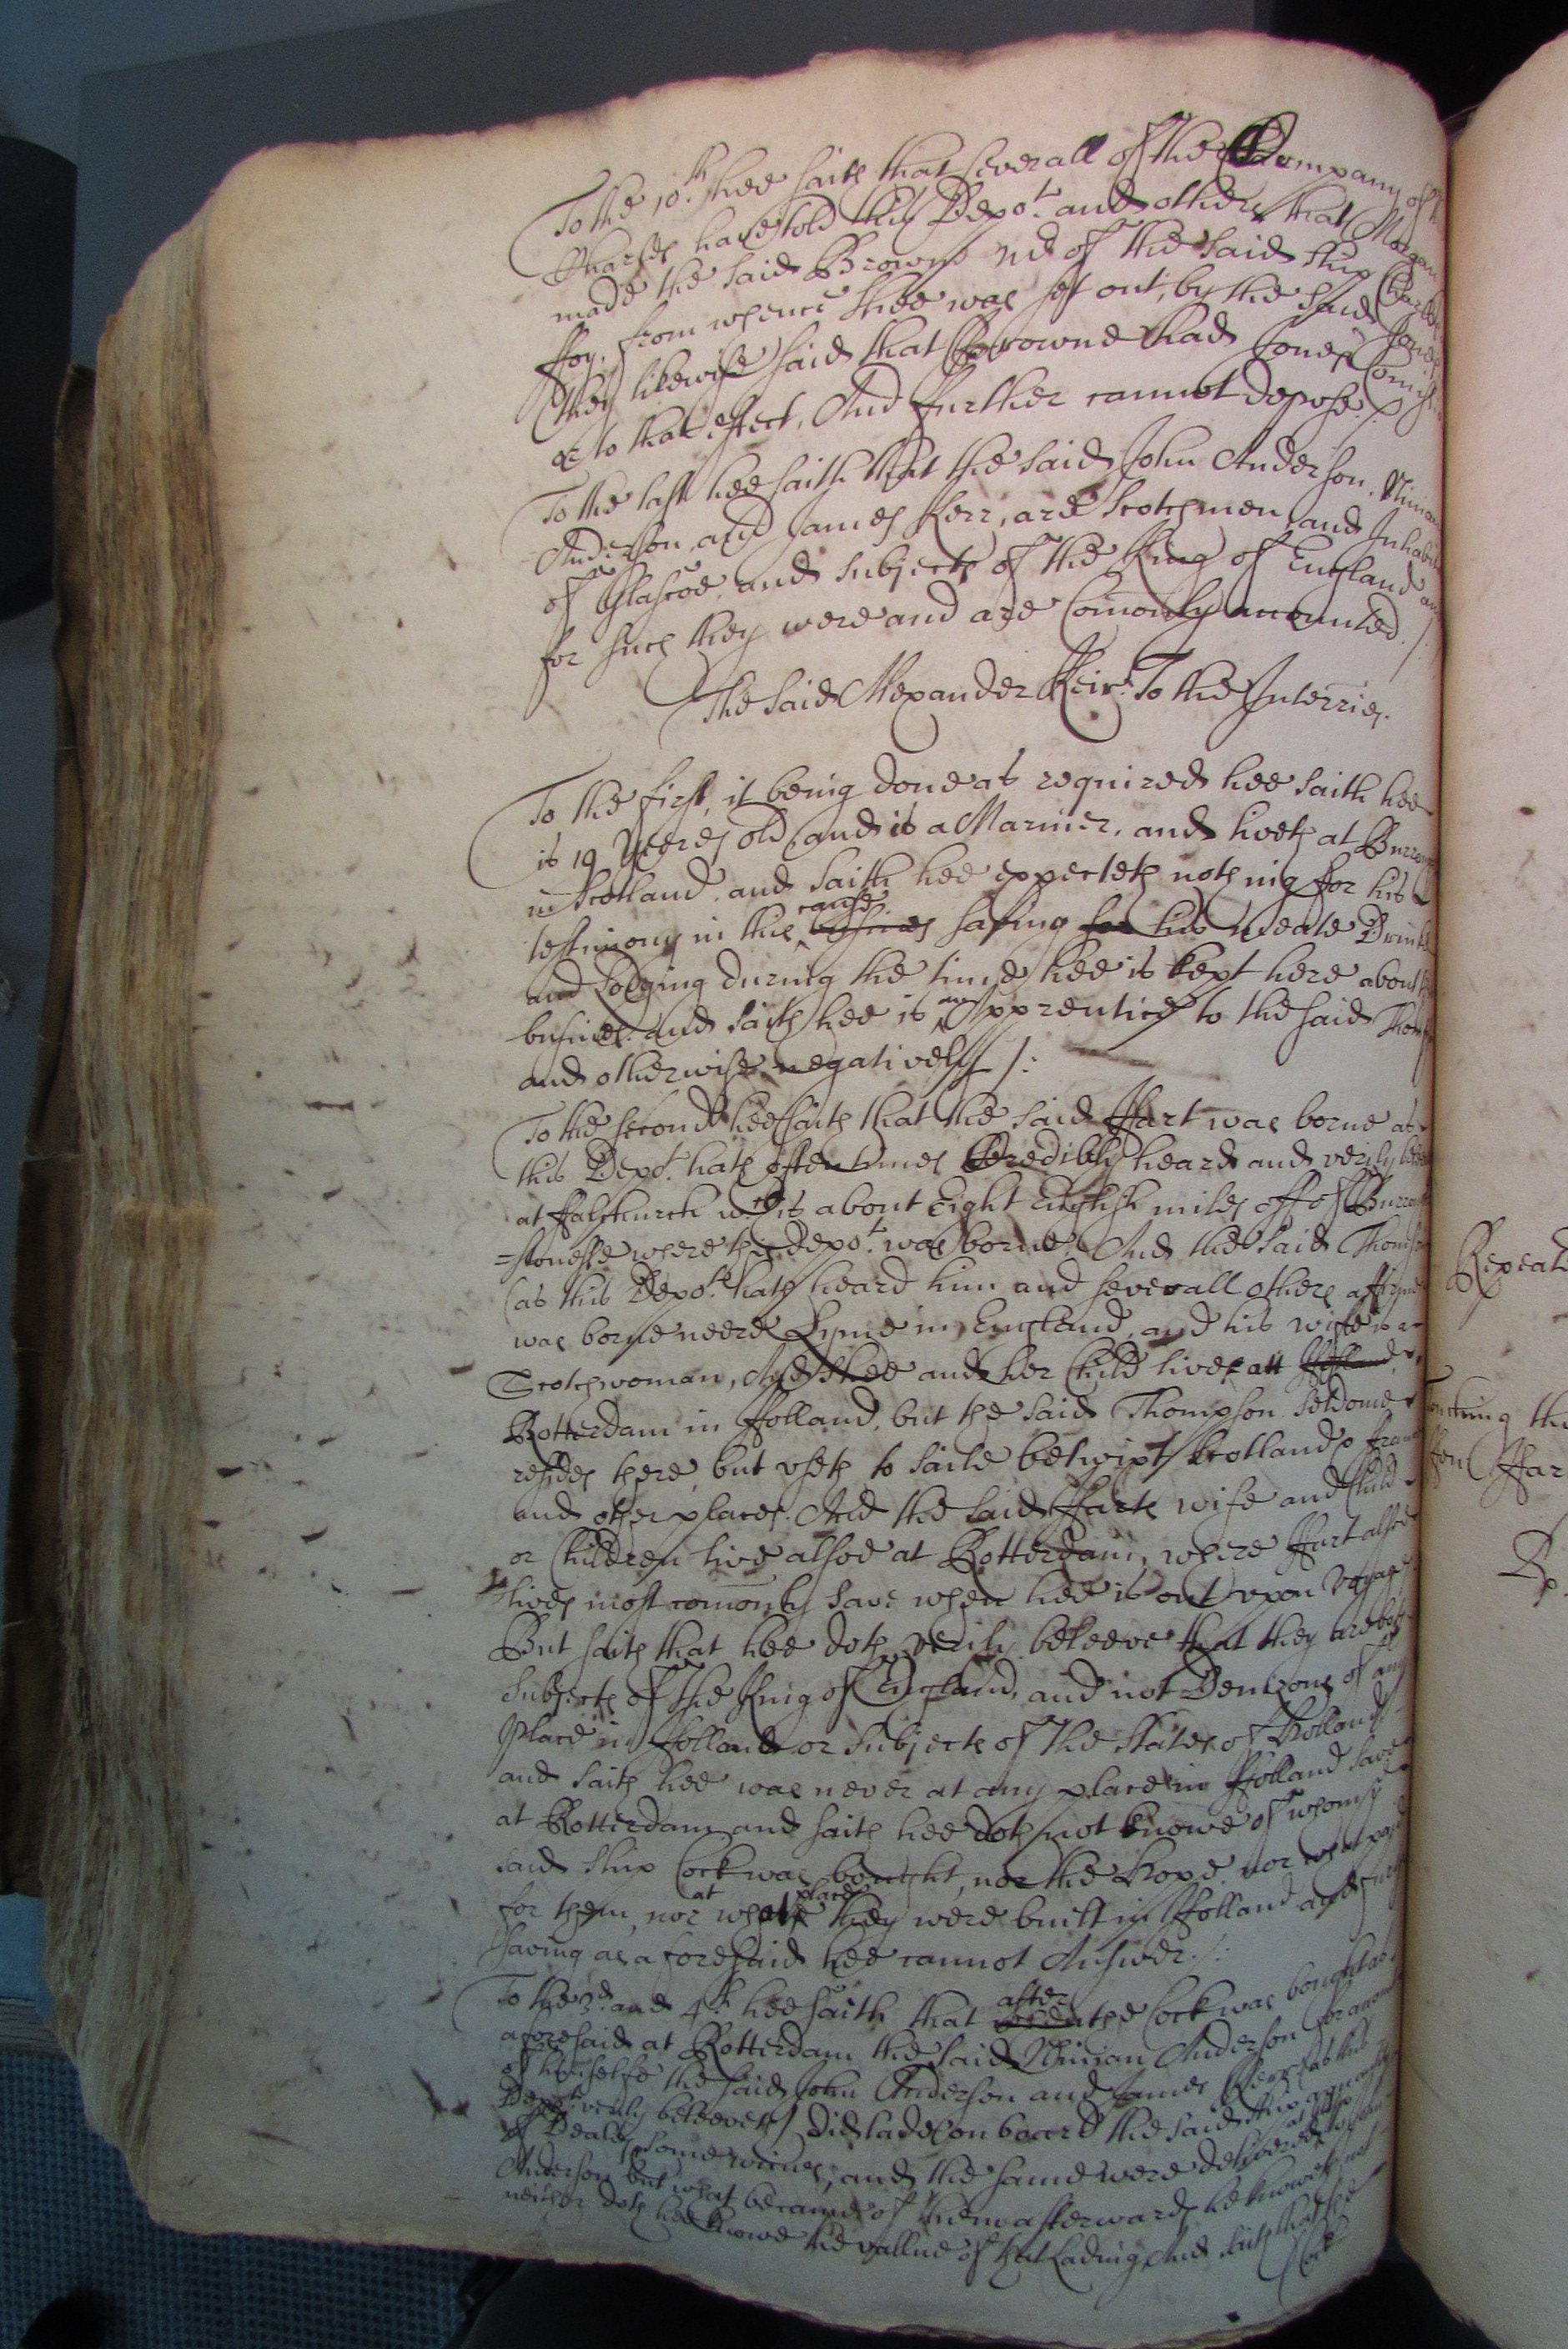 To the 10th. hee saith that severall of the Company of
Charles have told this Depot. and others that Morgan
made the said Browne Mr of the said ship Charles
ffoy, from whence shee was set out, by the said Jones
they likewise said that Browne had Jones Comission
or to that effect, And further cannot depose./.
To the last hee saith that the said John Anderson, Ninian
Anderson, and James Kerr, are Scotchmen, and Inhabit
of Glascoe, and subjects of the King of England and
for such they were and are Comonly accounted./.
The said Alexander Keir. To the Interries.
To the first, it being done as required hee saith hee
is 19 Yeeres old, and is a Mariner, and liveth at Burrow
in Scotland, and saith hee expecteth nothing for his
testimony in this cause busines saving for his Meate Drinke
and Lodging during the time hee is kept here about the
busines. And saith hee is an Apprentice to the said Thomp
and otherwise negatively /:
To the second hee saith that the said Hart was borne as
this Depot. hath often times Credibly heard and verily bele
at ffalchurch wch is about Eight English miles off of Burrow
=stonesse where this depot. was borne, And the said Thomson
(as this Depot. hath heard him and severall others affirme
was borne neere Lyme in England, and his wife is a
Scotchwoman, And shee and her Child lives att Holland
Rotterdam in Holland, but the said Thompson seldome
resides there, but useth to saile betwixt Scotland, ffran
and other places. And the said Harts wife and Child
or Children live alsoe at Rotterdam, where Hart alsoe
lives most comonly save when hee is out upon Voyage
But saith that hee doth verily beleeve that they are both
Subjects of the King of England, and not Denizons of any
Place in Holland or Subjects of the States of Holland
and saith hee was never at any place in Holland save
at Rotterdam and saith hee doth not knowe of whom the
said ship Cock was bought, nor the Hope nor what paid
for them, nor at what place they were built in Holland and furth
saving as aforesaid hee cannot Answer./:
To the 3d. and 4th. hee saith that after when the Cock was bought as
aforesaid at Rotterdam the said Ninian Anderson for accompt
of himselfe the said John Anderson and James Kerr (as this
Depot. verily beleeveth) did lade on board the said ship a quantity
of Deales, some wines, and the same were delivered to John
Anderson but what became of them afterwards he knoweth not
neither doth hee knowe the vallue of that Lading And saith that the
Cock
Repeate
Touching the
Har